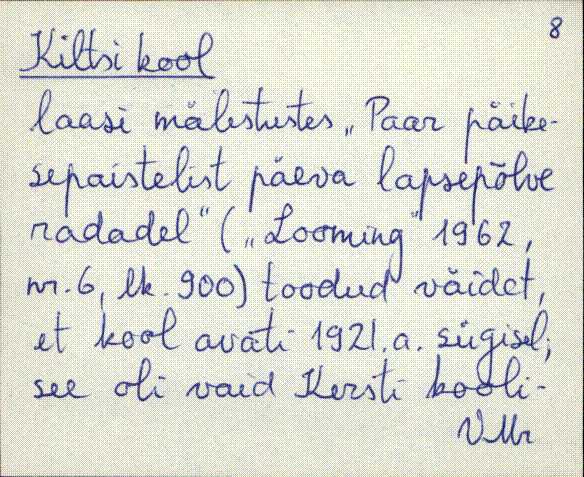 8
Kiltsi kool
laasi mälestustes „Paar päike-
sepaistelist päeva lapsepõlve
radadel" („Looming" 1962,
nr. 6, lk. 900) toodud väidet,
et kool avati 1921. a. sügisel;
see oli vaid Kersti kooli-
VMr